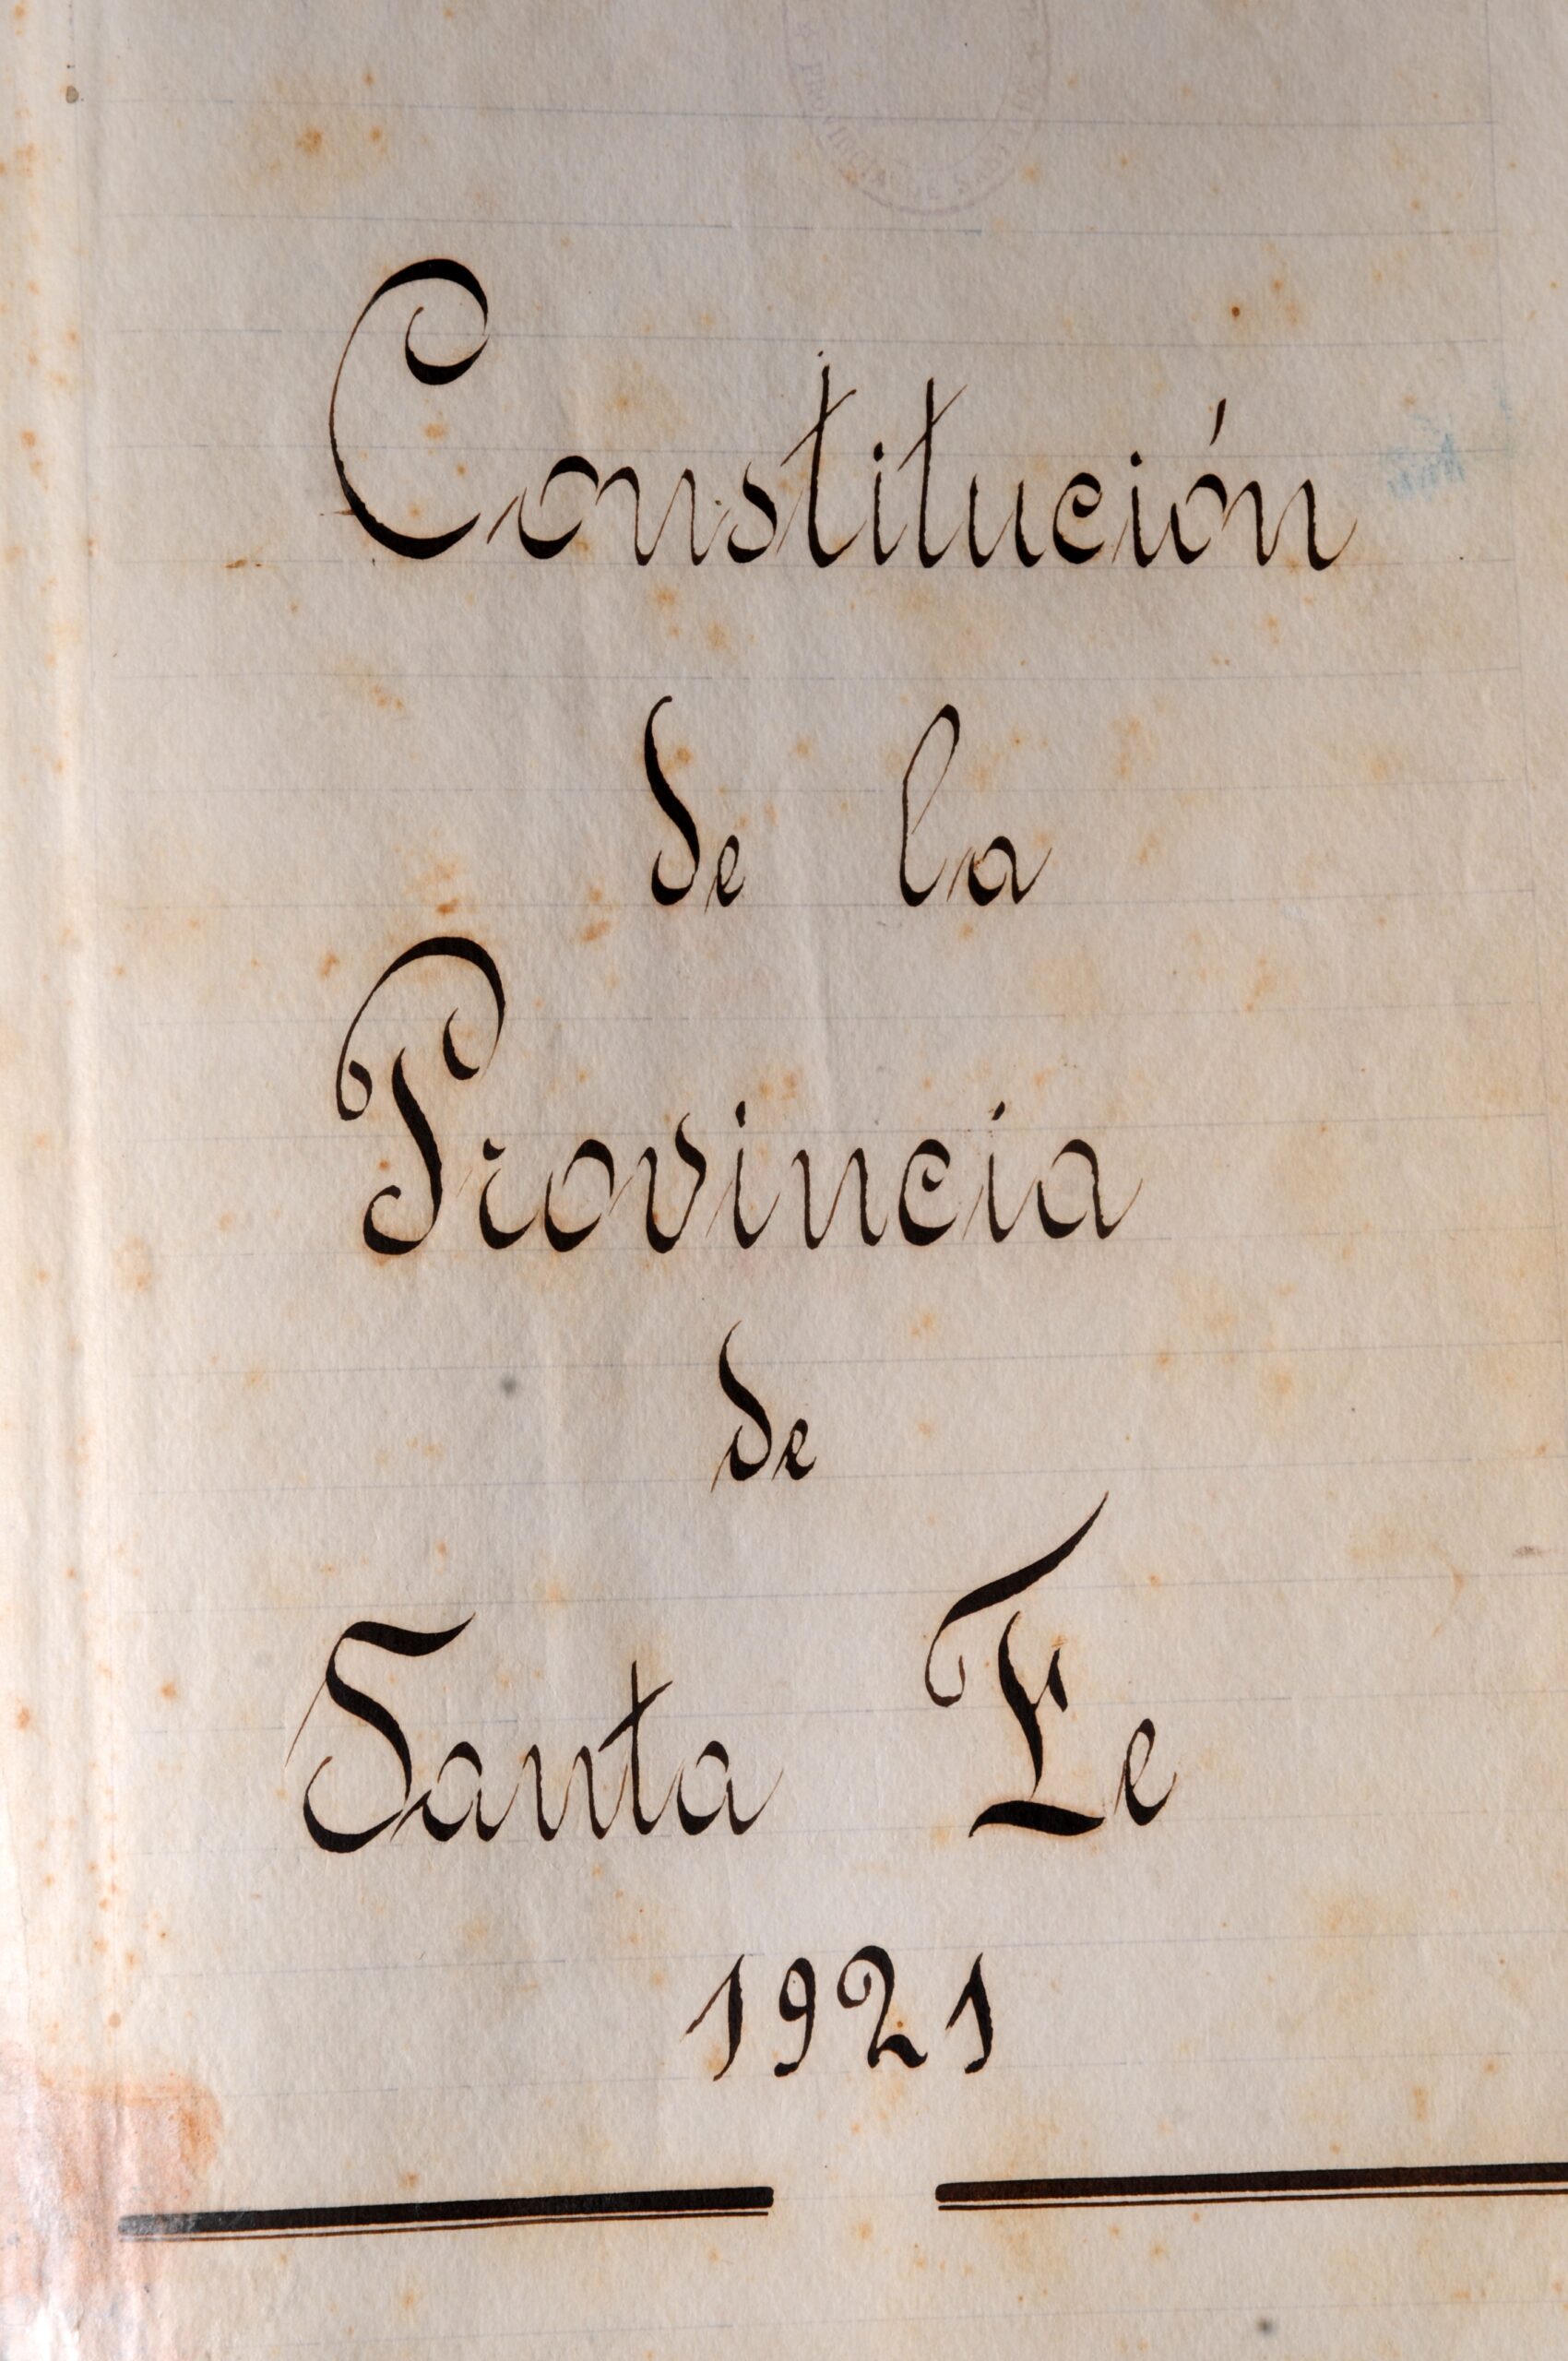 Constitución
de la
Provincia
de
Santa Fe
1921